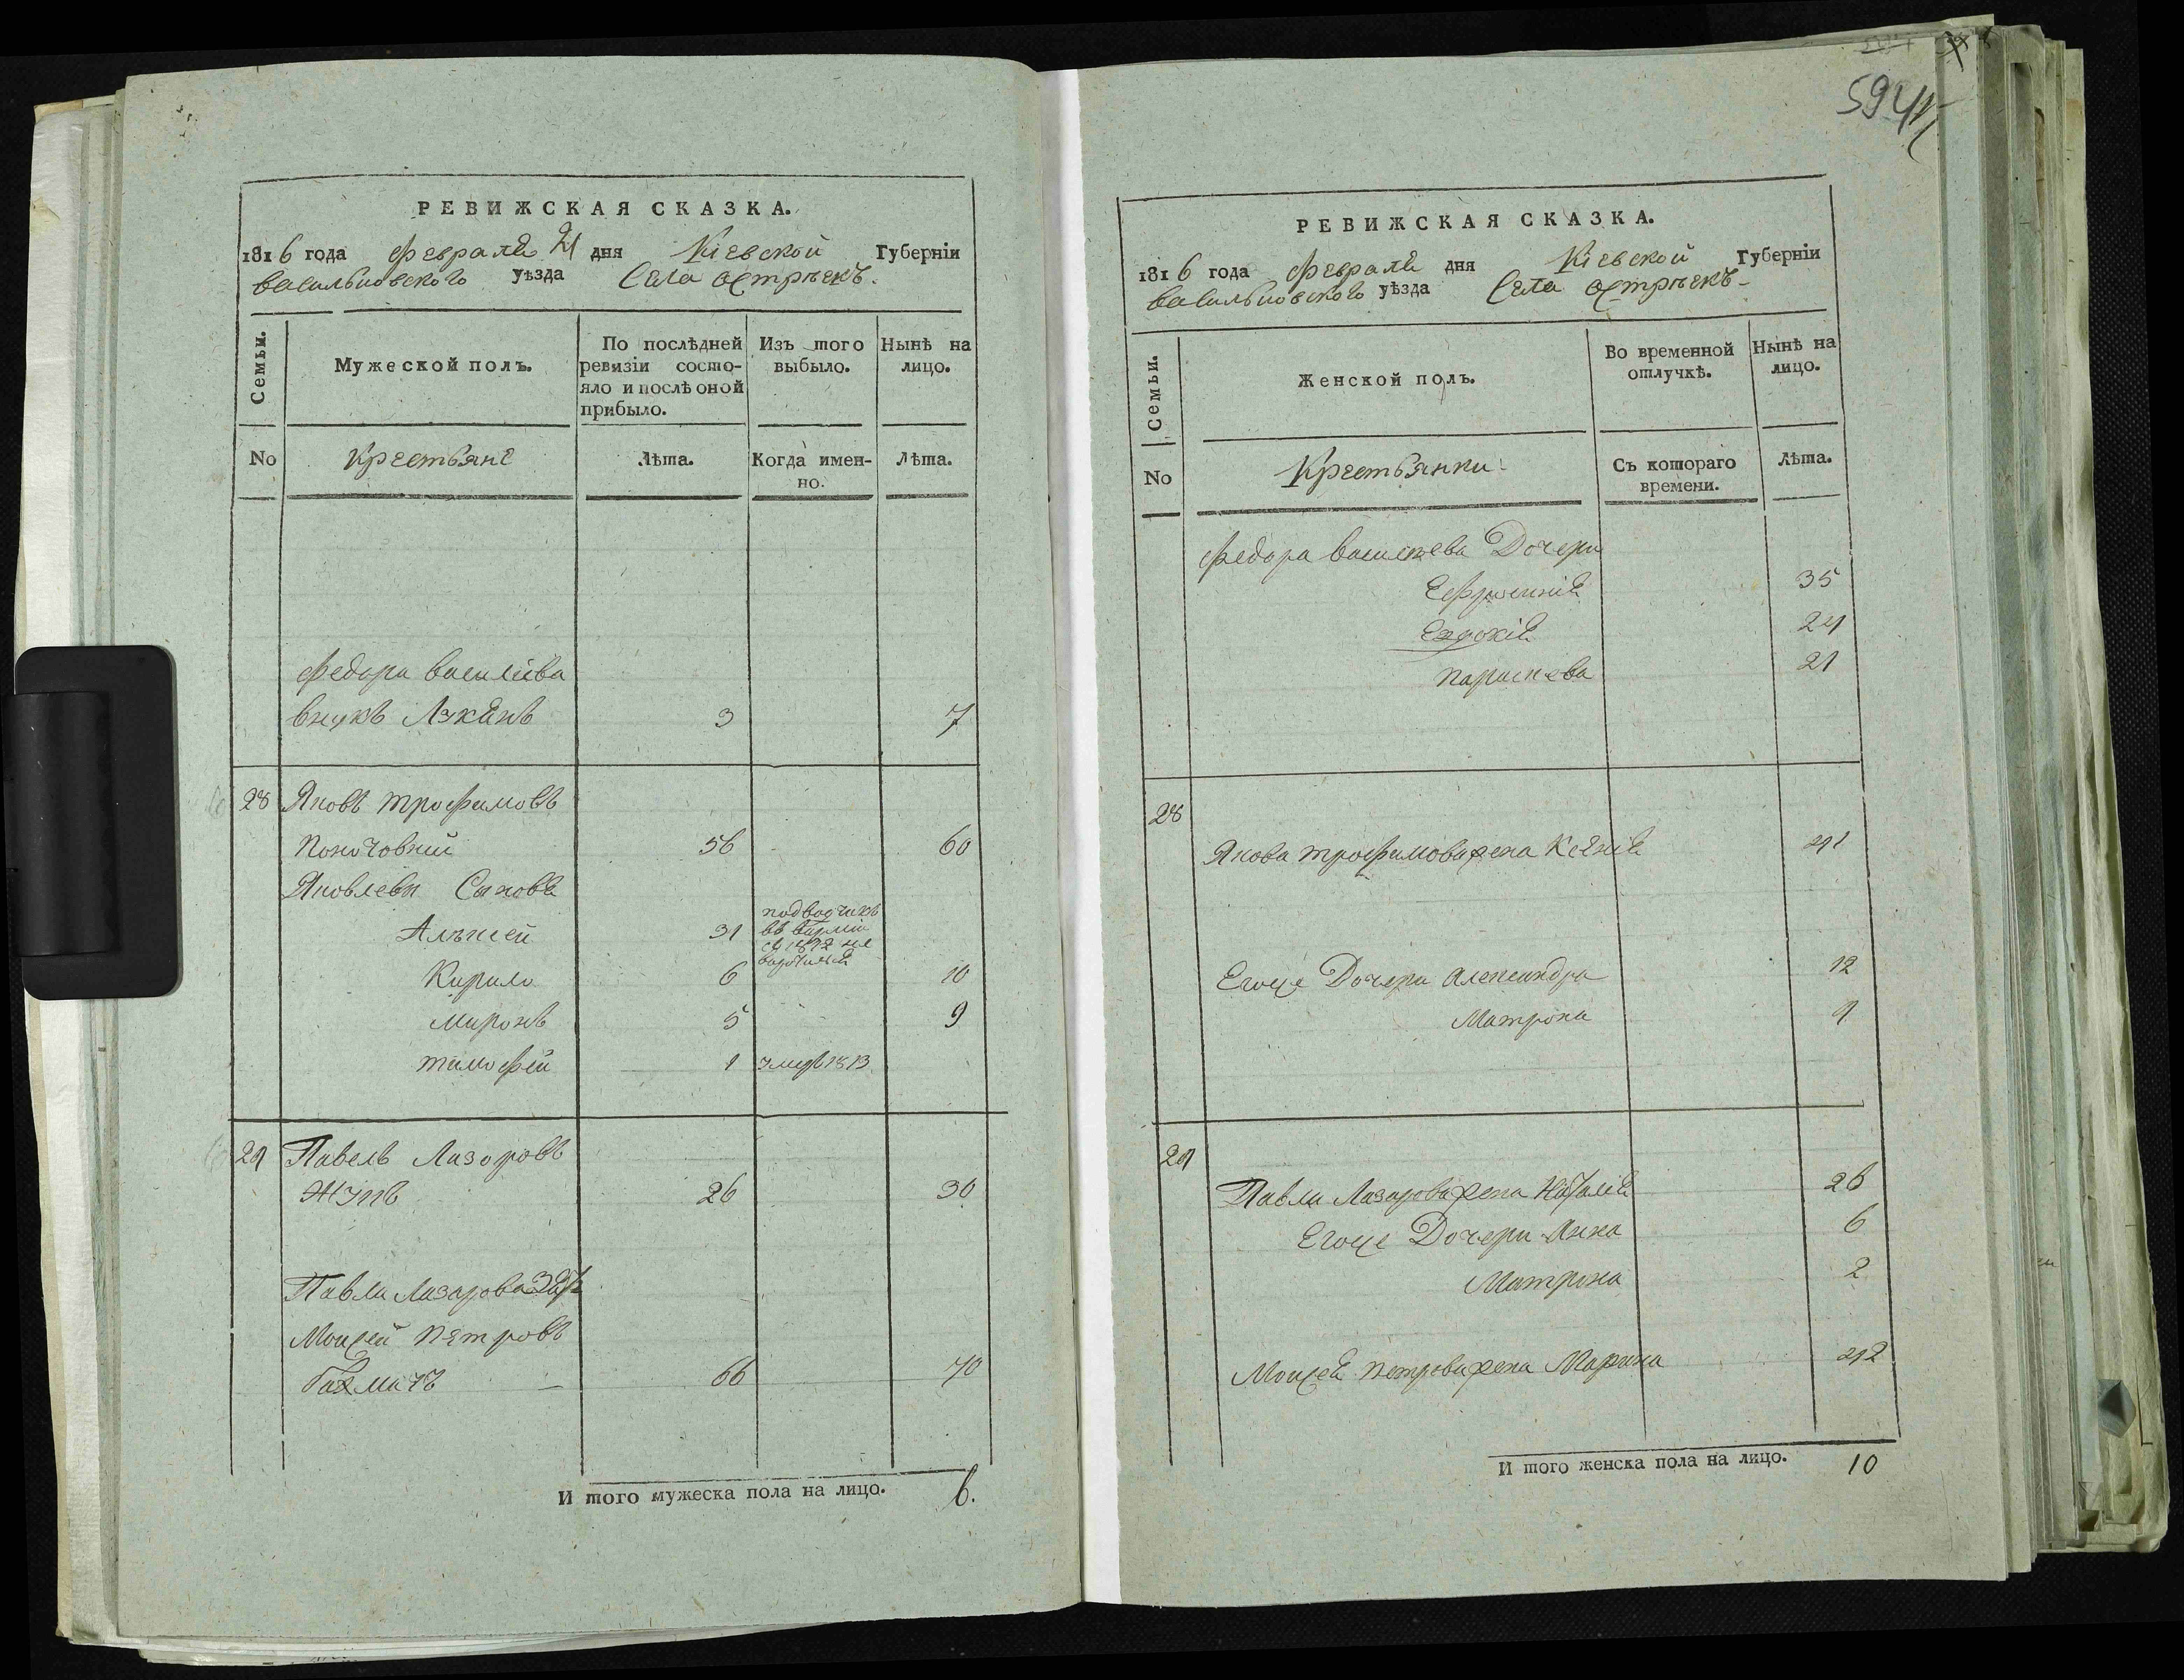 РЕВИЖСКАЯ СКАЗКА.
1816 года Февраля 21 дня Кіевской Губерніи
васильковского уѣзда Села острѣекъ.
Семьи.
Мужеской полъ.
По послѣдней ревизіи состояло и послѣ оной прибыло.
Изъ того выбыло.
Нынѣ на лицо.
No
Крестьяне
Лѣта.
Когда именно.
Лѣта.
Федора василіева
внукъ 3 7
28 Яковъ трофимовъ
56 60
Яковлевы Сыновя
Алѣксей 31 подводчикъ
въ
съ 1812 не
Кирило 6 10
Миронъ 5 9
тимофей 1 умеръ 1813
29 Павелъ Лазоровъ
Жукъ 26 30
Павла Лазарова Зять
Моисей Петровъ
66 70
И того мужеска пола на лицо. 6.
594
РЕВИЖСКАЯ СКАЗКА.
1816 года Февраля дня Кіевской Губерніи
васильковского уѣзда Села острѣекъ
Семьи.
Женской полъ.
Во временной отлучкѣ.
Нынѣ на лицо.
No
Крестьянки
Съ котораго времени.
Лѣта.
Федора василіева Дочери
Ефросинія 35
Евдокія 24
параскева 21
28
Якова трофимова жена Ксенія 41
Егоже Дочери Александра 12
Матрона 9
29
Павла Лазарова жена Наталія 26
Егоже Дочери Анна 6
Матрона 2
Моисея петрова жена Марина 42
И того женска пола на лицо. 10